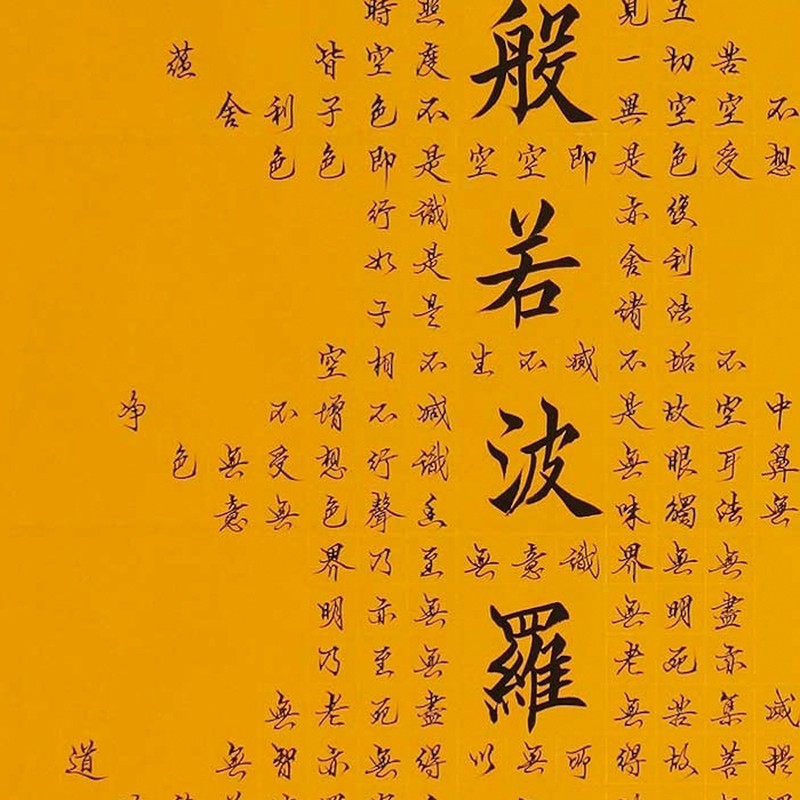 般若波羅
時照見五
蘊皆空度一切苦
舍利子色不異空空不
色色即是空空即是色受想
行識亦復
如是舍利
子是諸法
空相不生不滅不垢不
净不增不減是故空中
色無受想行識無眼耳鼻
意無色聲香味觸法無
界乃至無意識界無無
明亦無無明盡
乃至無老死亦
無老死盡無苦集滅
道無智亦無得以無所得故菩提